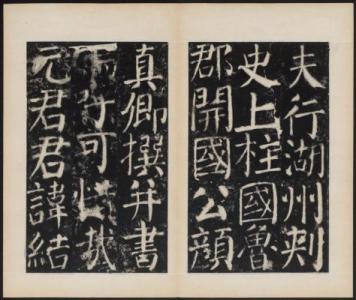 夫行湖州刺
史上柱國魯
郡開國公顏
真卿撰并書
可惜哉
元君君諱結